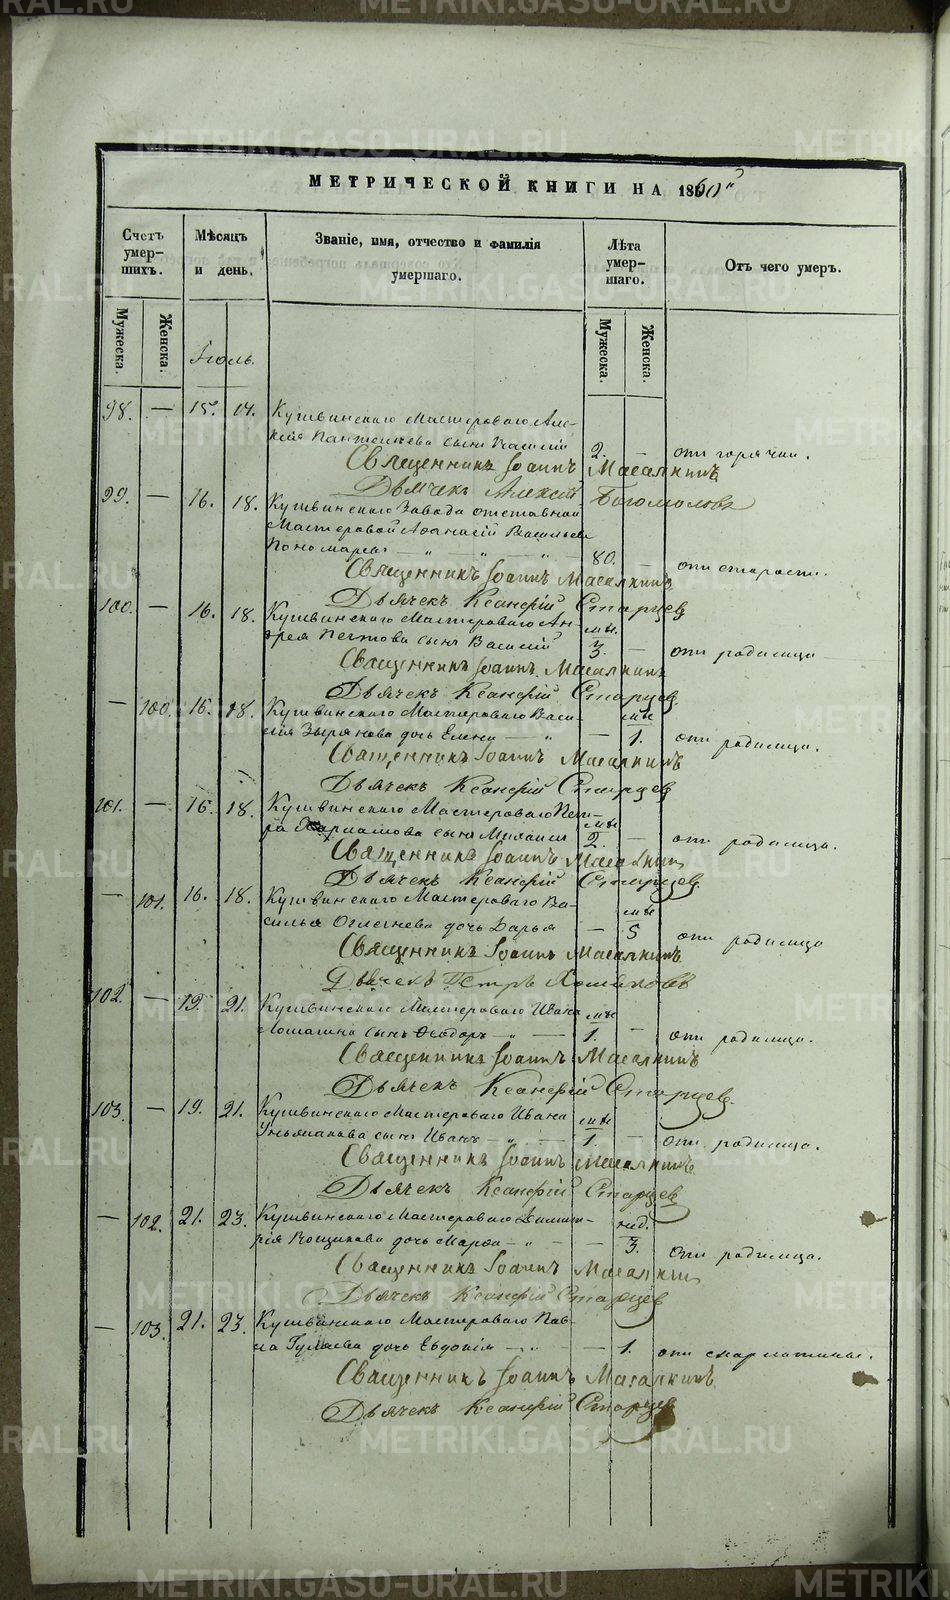 МЕТРИЧЕСКОЙ КНИГИ НА 1860й
Счетъ умер-шихъ.
Мѣсяцъ и день.
Званіе, имя, отчество и фамилія умершаго.
Лѣта умер-шаго.
Отъ чего умеръ.
Мужеска. Женска. Мужеска. Женска.
Іюль.
98. — 15. 17. Кушвинскаго Мастероваго Але-
ксія сынъ Василій 2. — отъ горячки.
Священникъ Іоаннъ Масалкинъ
Дьячекъ Алексій Богомоловъ
99. — 16. 18. Кушвинскаго Завода отставной
Мастеровой Аѳанасій Васильевъ
Пономаревъ — „ — „ — „ — 80. — отъ старости.
Священникъ Іоаннъ Масалкинъ
Дьячекъ Ксанфій Старцев
100. — 16. 18. Кушвинскаго Мастероваго Ан-
дрея Пестова сынъ Василій мѣс. 3. — отъ родимца
Священникъ Іоаннъ Масалкинъ
Дьячекъ Ксанфій Старцев
— 100. 16. 18. Кушвинскаго Мастероваго Васи-
лія Зырянова дочь Елена — „ — мѣс 1. отъ родимца.
Священникъ Іоаннъ Масалкинъ
Дьячекъ Ксанфій Старцев
101. — 16. 18. Кушвинскаго Мастероваго Пет-
ра сынъ Михаилъ мѣс 2. — отъ родимца.
Священникъ Іоаннъ Масалкин
Дьячекъ Ксанфій Старцев.
— 101. 16. 18. Кушвинскаго Мастероваго Ва-
силья дочь Дарья — мѣс 5 отъ родимца
Священникъ Іоаннъ Масалкинъ
Дьячекъ Петръ Хомяковъ
102. — 19. 21. Кушвинскаго Мастероваго Ивана
Лошагина сынъ Ѳеодоръ — „ — мѣс 1. — отъ родимца.
Священникъ Іоаннъ Масалкинъ
Дьячекъ Ксанфій Старцев.
103. — 19. 21. Кушвинскаго Мастероваго Ивана
сынъ Иванъ — „ — мѣс 1. — отъ родимца.
Священникъ Іоаннъ Масалкинъ
Дьячекъ Ксанфій Старцев
— 102. 21. 23. Кушвинскаго Мастероваго Димит-
рія дочь Марѳа — „ — — нед. 3. отъ родимца.
Священникъ Іоаннъ Масалкин
Дьячекъ Ксанфій Старцев
— 103. 21. 23. Кушвинскаго Мастероваго Пав-
ла Гуляева дочь Евдокія — „ — — 1. отъ скарлатины.
Священникъ Іоаннъ Масалкинъ
Дьячекъ Ксанфій Старцев
METRIKI.GASO-URAL.RU